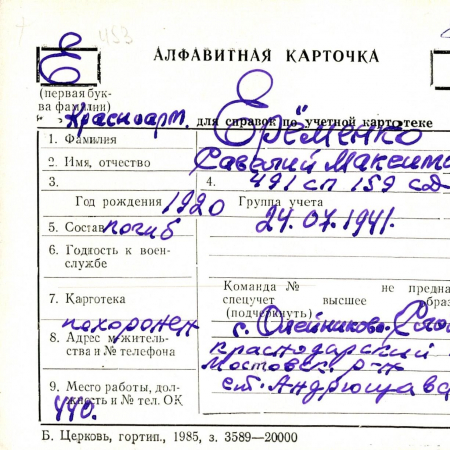 Е 453
АЛФАВИТНАЯ КАРТОЧКА
(первая бук-
ва фамилии)
Красноарм. для справок по учетной картотеке
1. Фамилия Ерёменко
2. Имя, отчество Савелий Максимо
3. 4. 491 сп 159 сд
Год рождения 1920 Группа учета
5. Состав погиб 24.07.1941.
6. Годность к воен-
службе
Команда № не предна
7. Картотека спецучет высшее образ
(подчеркнуть)
похоронен с. Олейниково
8. Адрес м/житель- Краснодарский
ства и № телефона Мостовск. р-н
9. Место работы, дол- ст. Андрющ
жность и № тел. ОК
440.
Б. Церковь, гортип., 1985, з. 3589—20000